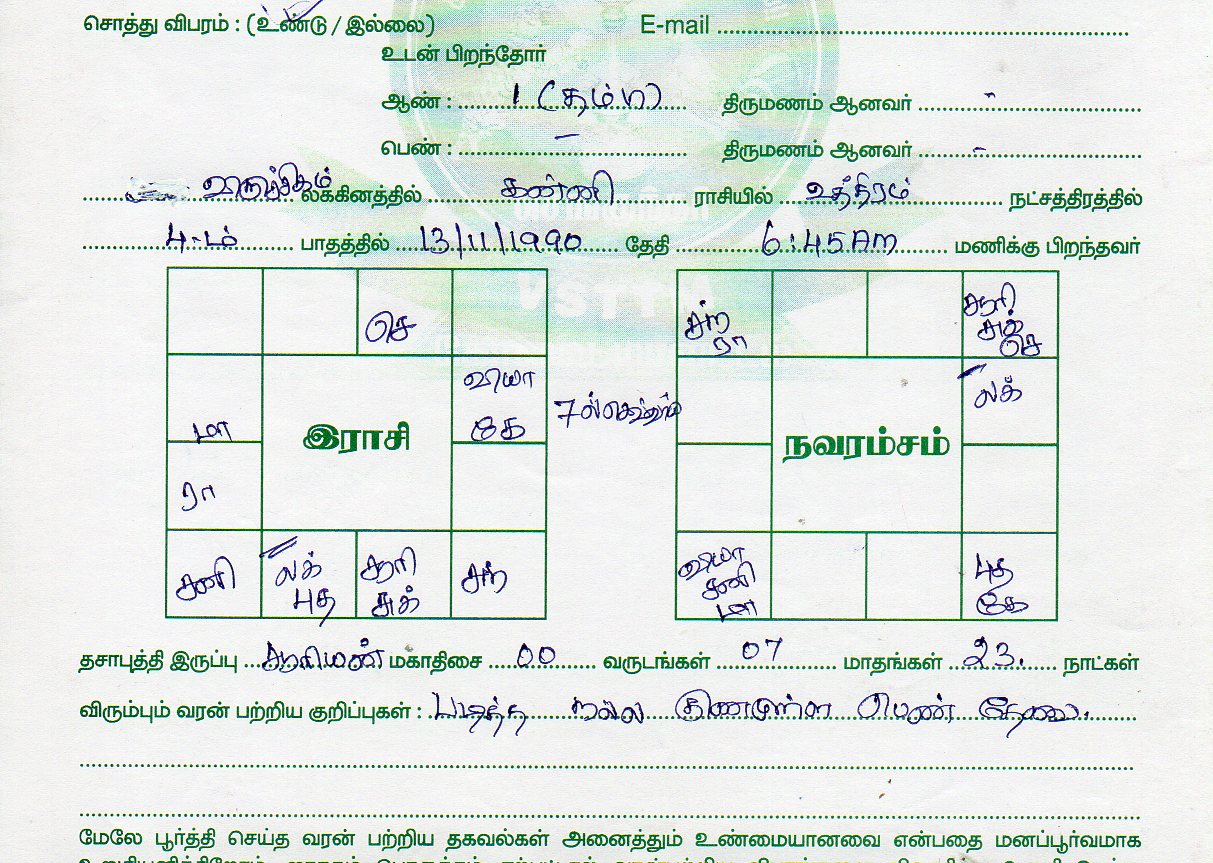 சொத்து விபரம் : (உண்டு / இல்லை) E-mail
உடன் பிறந்தோர்
ஆண் : 1 (தம்பி) திருமணம் ஆனவர் -
பெண் : - திருமணம் ஆனவர் -
விருச்சிகம் லக்கினத்தில் கன்னி ராசியில் உத்திரம் நட்சத்திரத்தில்
4-ம் பாதத்தில் 13/11/1990 தேதி 6:45 AM மணிக்கு பிறந்தவர்
செ
வியா
கே
மா
இராசி
ரா
சனி
லக்
புத
சூரி
சுக்
சந்
7ல் செவ்வாய்
சந்
ரா
சூரி
சுக்
செ
லக்
நவரம்சம்
வியா
சனி
மா
புத
கே
தசாபுத்தி இருப்பு சூரியன் மகாதிசை 00 வருடங்கள் 07 மாதங்கள் 23. நாட்கள்
விரும்பும் வரன் பற்றிய குறிப்புகள் : படித்த நல்ல குணமுள்ள பெண் தேவை.
மேலே பூர்த்தி செய்த வரன் பற்றிய தகவல்கள் அனைத்தும் உண்மையானவை என்பதை மனப்பூர்வமாக